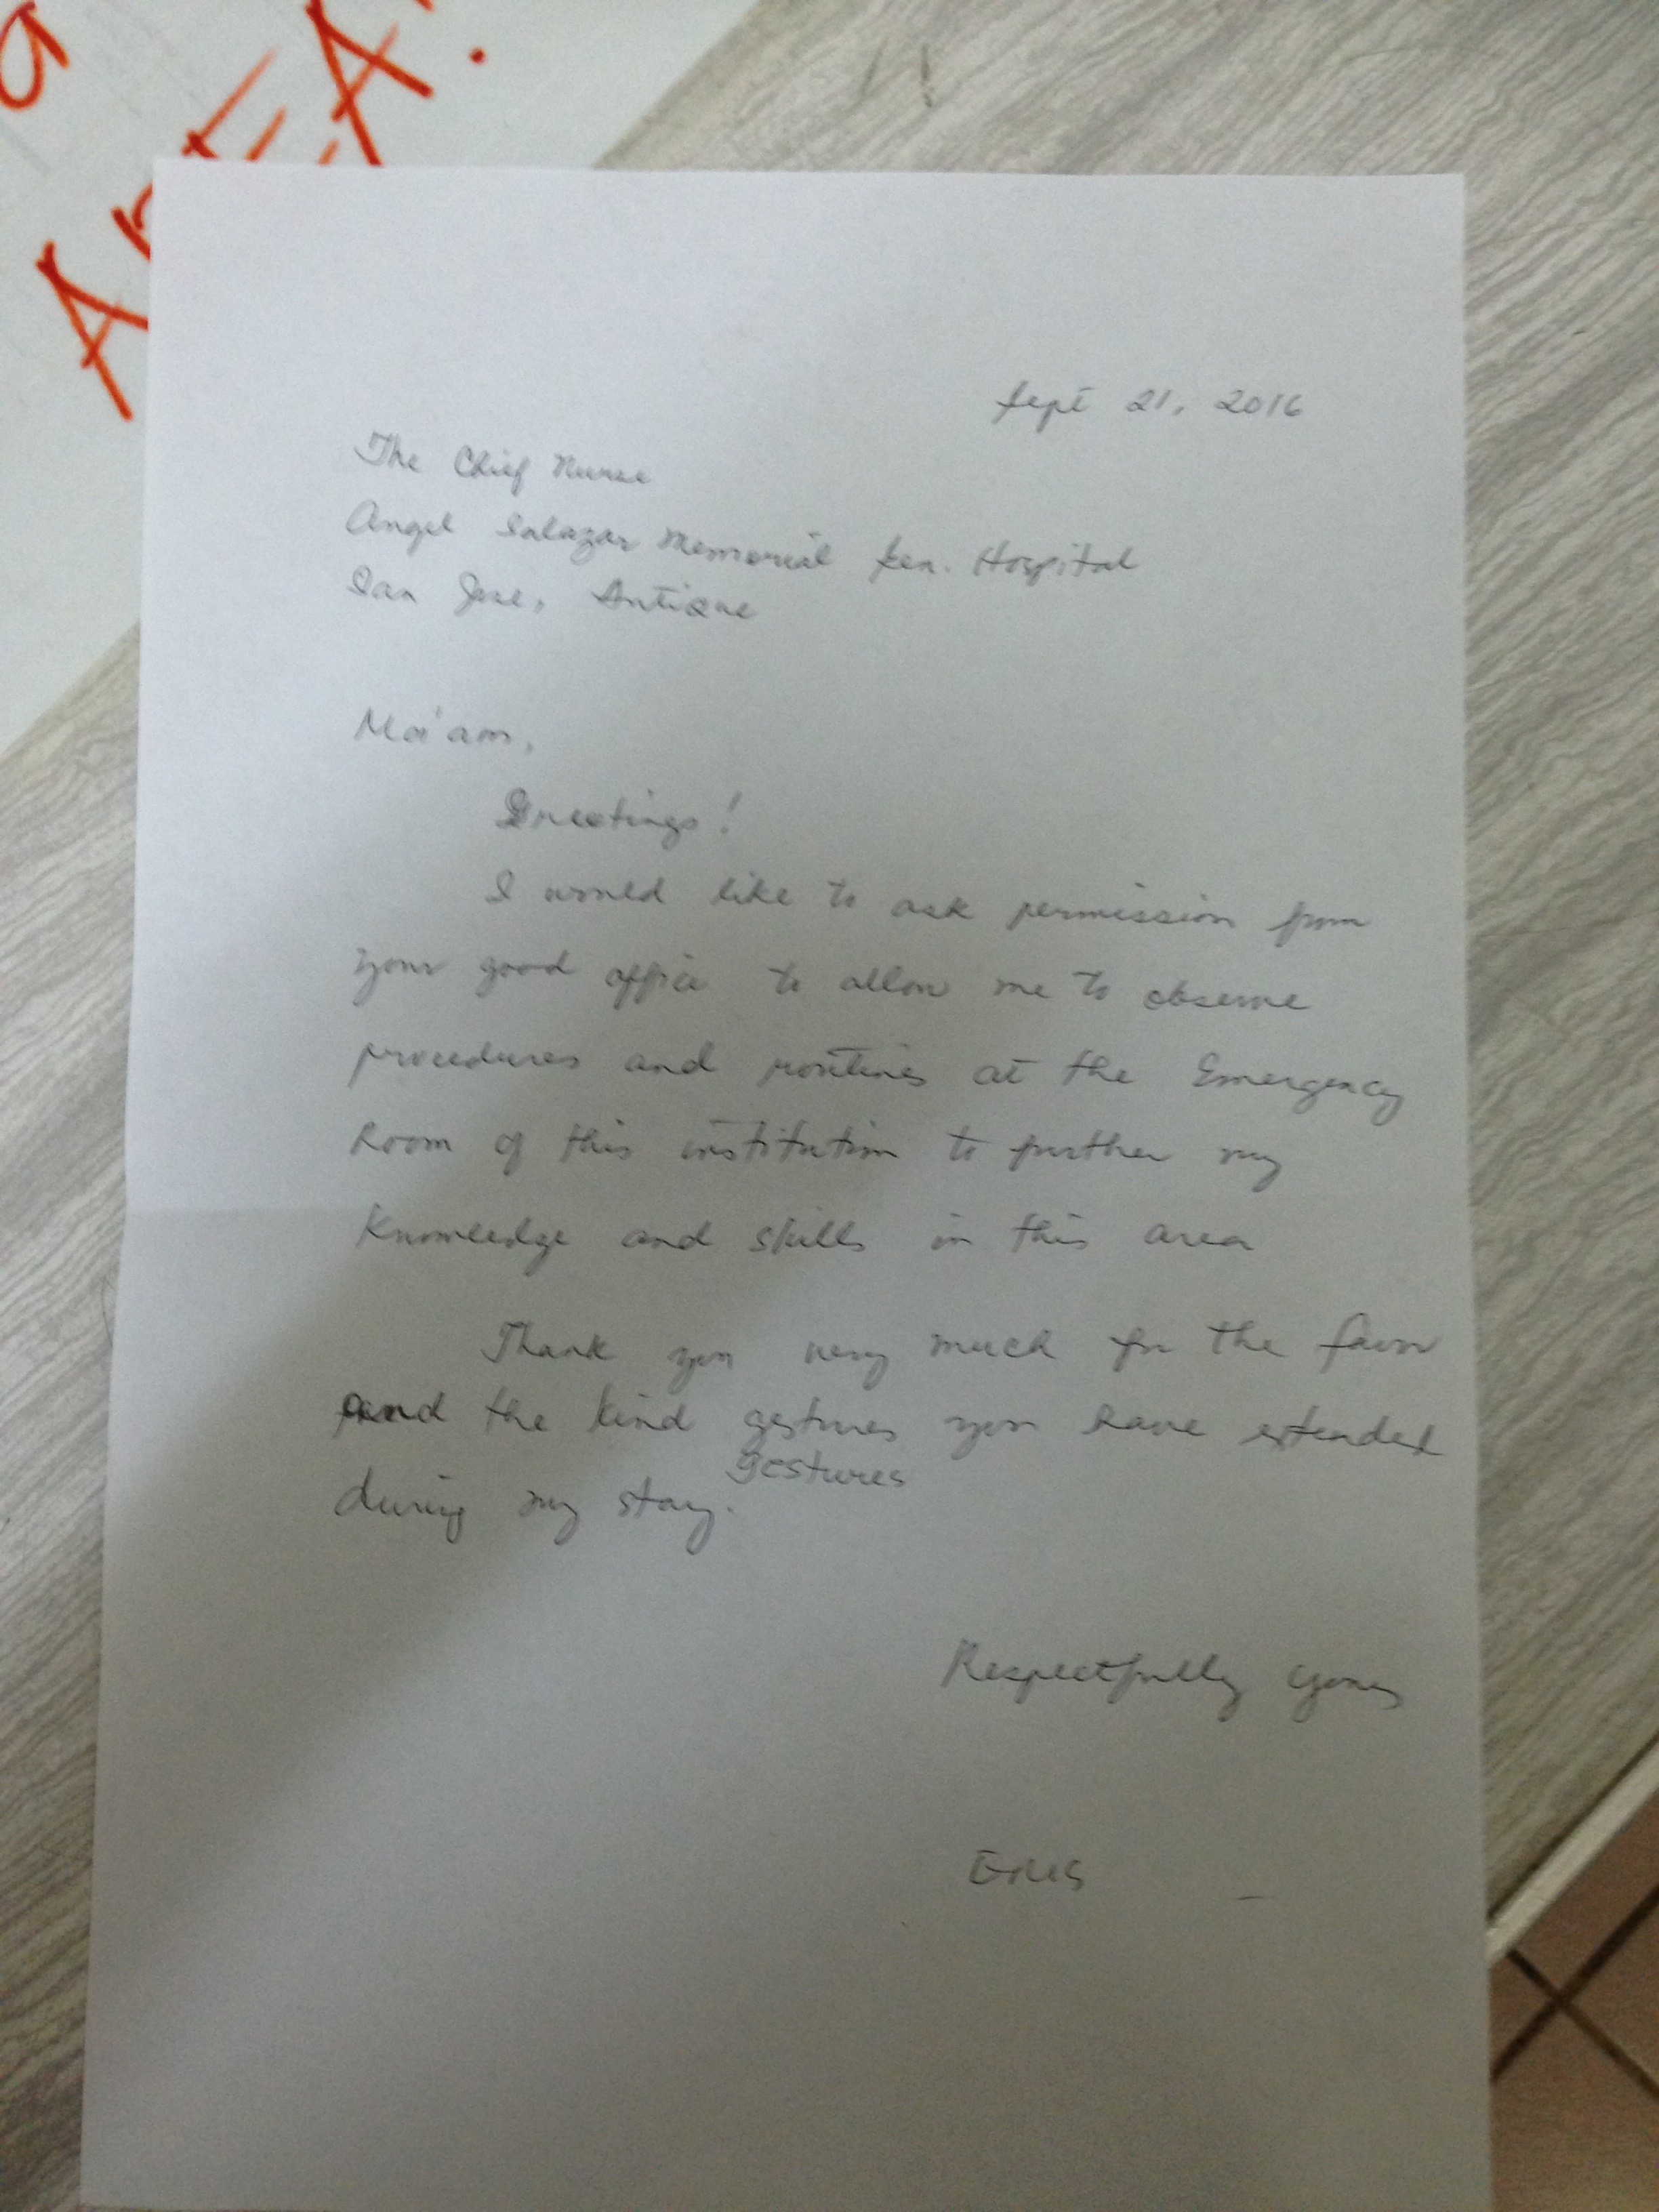 AREA.
Sept 21, 2016
The Chief Nurse
Angel Salazar Memorial Gen. Hospital
San Jose, Antique
Ma'am,
Greetings!
I would like to ask permission from
your good office to allow me to observe
procedures and routines at the Emergency
Room of this institution to further my
knowledge and skills in this area
Thank you very much for the favor
and the kind gestures you have extended
gestures
during my stay.
Respectfully yours